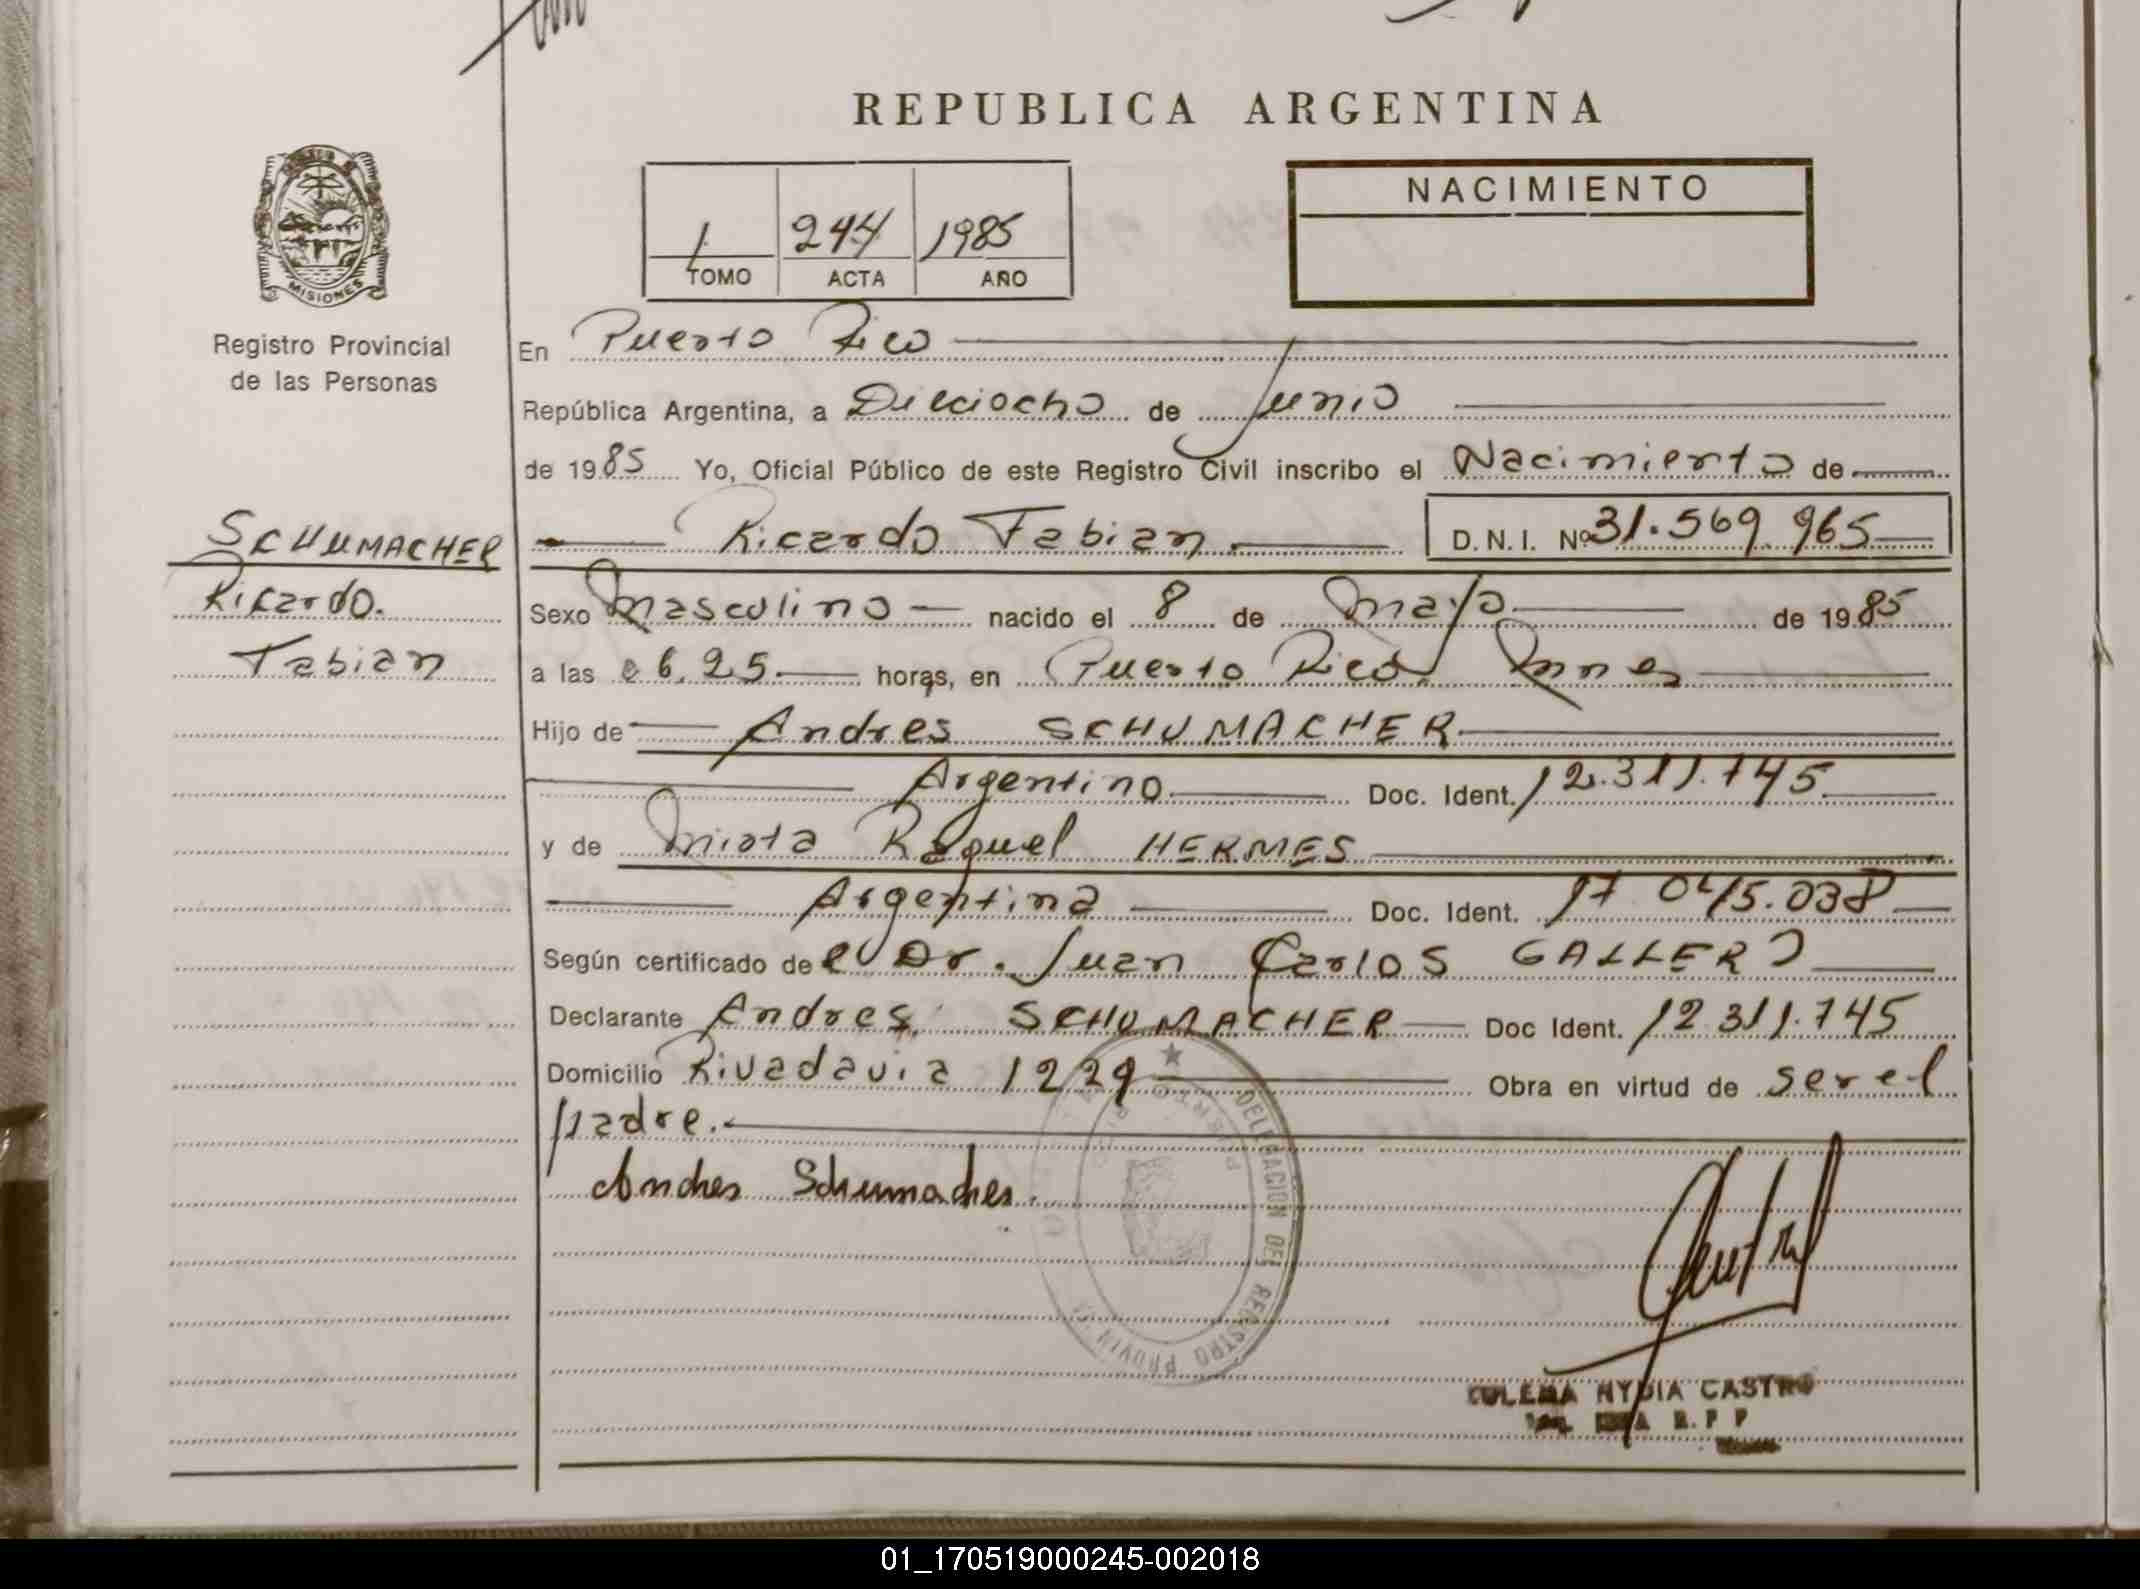 REPUBLICA ARGENTINA
MISIONES
Registro Provincial
de las Personas
1 244 1985
TOMO ACTA AÑO
NACIMIENTO
En Puerto Rico
República Argentina, a Dieciocho de Junio
de 1985 Yo, Oficial Público de este Registro Civil inscribo el Nacimiento de
SCHUMACHER
Ricardo.
Fabian
Ricardo Fabian D.N.I. Nº 31.569.965
Sexo Masculino nacido el 8 de Mayo de 1985
a las 06,25 horas, en Puerto Rico Mnes
Hijo de Andres SCHUMACHER
Argentino Doc. Ident. 12.311.745
y de Mirta Raquel HERMES
Argentina Doc. Ident. 17.045.038
Según certificado de el Dr. Juan Carlos GALLERO
Declarante Andres SCHUMACHER Doc Ident. 12.311.745
Domicilio Rivadavia 1229 Obra en virtud de ser el
padre.
Andres Schumacher
DELEGACION DEL REGISTRO PROVINCIAL
PUERTO RICO
NYDIA CASTRO
R.P.P
01_170519000245-002018